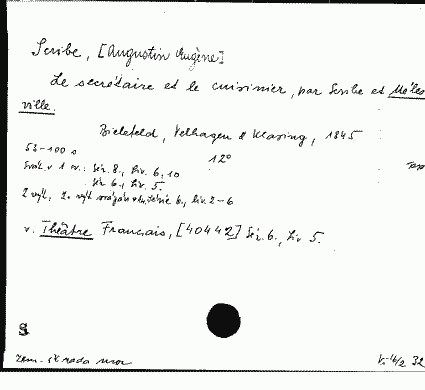 Scribe, [Augustin Eugène]
Le secrétaire et le cuisinier, par Scribe et Méles
ville.
Bielefeld, Velhagen & Klasing, 1845
53-100 s
12°
Sváz. v 1 sv.: Sér. 8., liv. 6, 10
Sér. 6., liv. 5.
2 výt., 2. výt. svázán série 6., liv. 2-6
v. Théâtre Français, [40442] Sér. 6., liv 5.
S